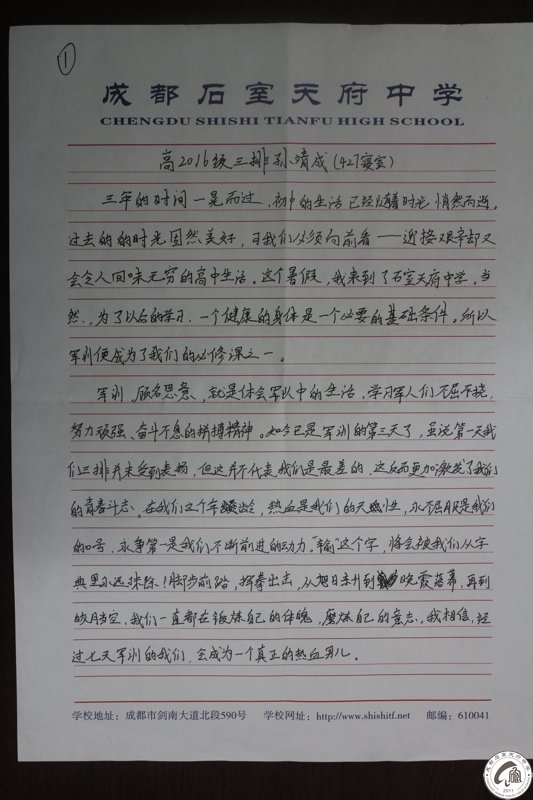 ①
成都石室天府中学
CHENGDU SHISHI TIANFU HIGH SCHOOL
高2016级三排孙靖成(427寝室)
三年的时间一晃而过,初中的生活已经随着时光悄然而逝。
过去的的时光固然美好,可我们必须向前看——迎接艰辛却又
会令人回味无穷的高中生活。这个暑假,我来到了石室天府中学,当
然,为了以后的学习,一个健康的身体是一个必要的基础条件。所以
军训便成为了我们的必修课之一。
军训,顾名思意,就是体会军队中的生活,学习军人们不屈不挠,
努力顽强、奋斗不息的拼搏精神。如今已是军训的第三天了,虽说第一天我
们三排并未受到表扬,但这并不代表我们是最差的,这反而更加激发了我们
的青春斗志。在我们这个年龄,热血是我们的天性,永不屈服是我们
的口号,永争第一是我们不断前进的动力。“输”这个字,将会被我们从字
典里永远抹除!脚步前踏,挥拳出击,从旭日未升到晚霞落幕,再到
皓月当空,我们一直都在锻炼自己的体魄,磨炼自己的意志。我相信,经
过七天军训的我们,会成为一个真正的热血男儿。
学校地址:成都市剑南大道北段590号 学校网址:http://www.shishitf.net 邮编:610041
2011